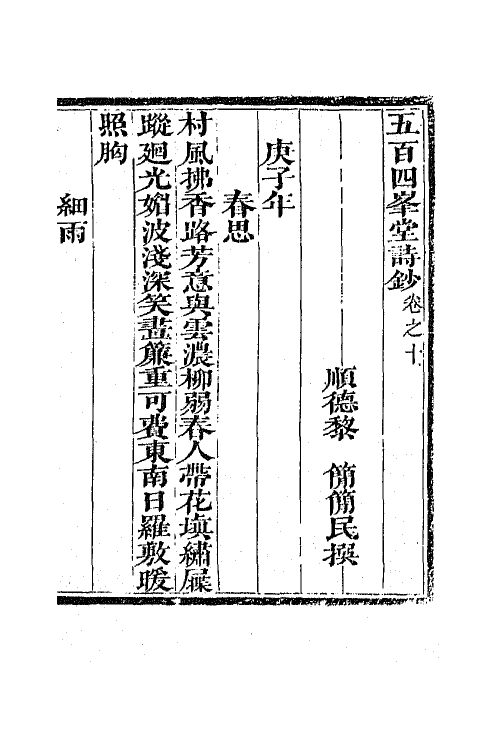 五百四峯堂詩鈔卷之十
順德黎　簡簡民撰
庚子年
春思
村風拂香路芳意與雲濃柳弱春人帶花塡繡屧
蹤廻光媚波淺深笑畫簾重可費東南日羅敷暖
照胸
細雨